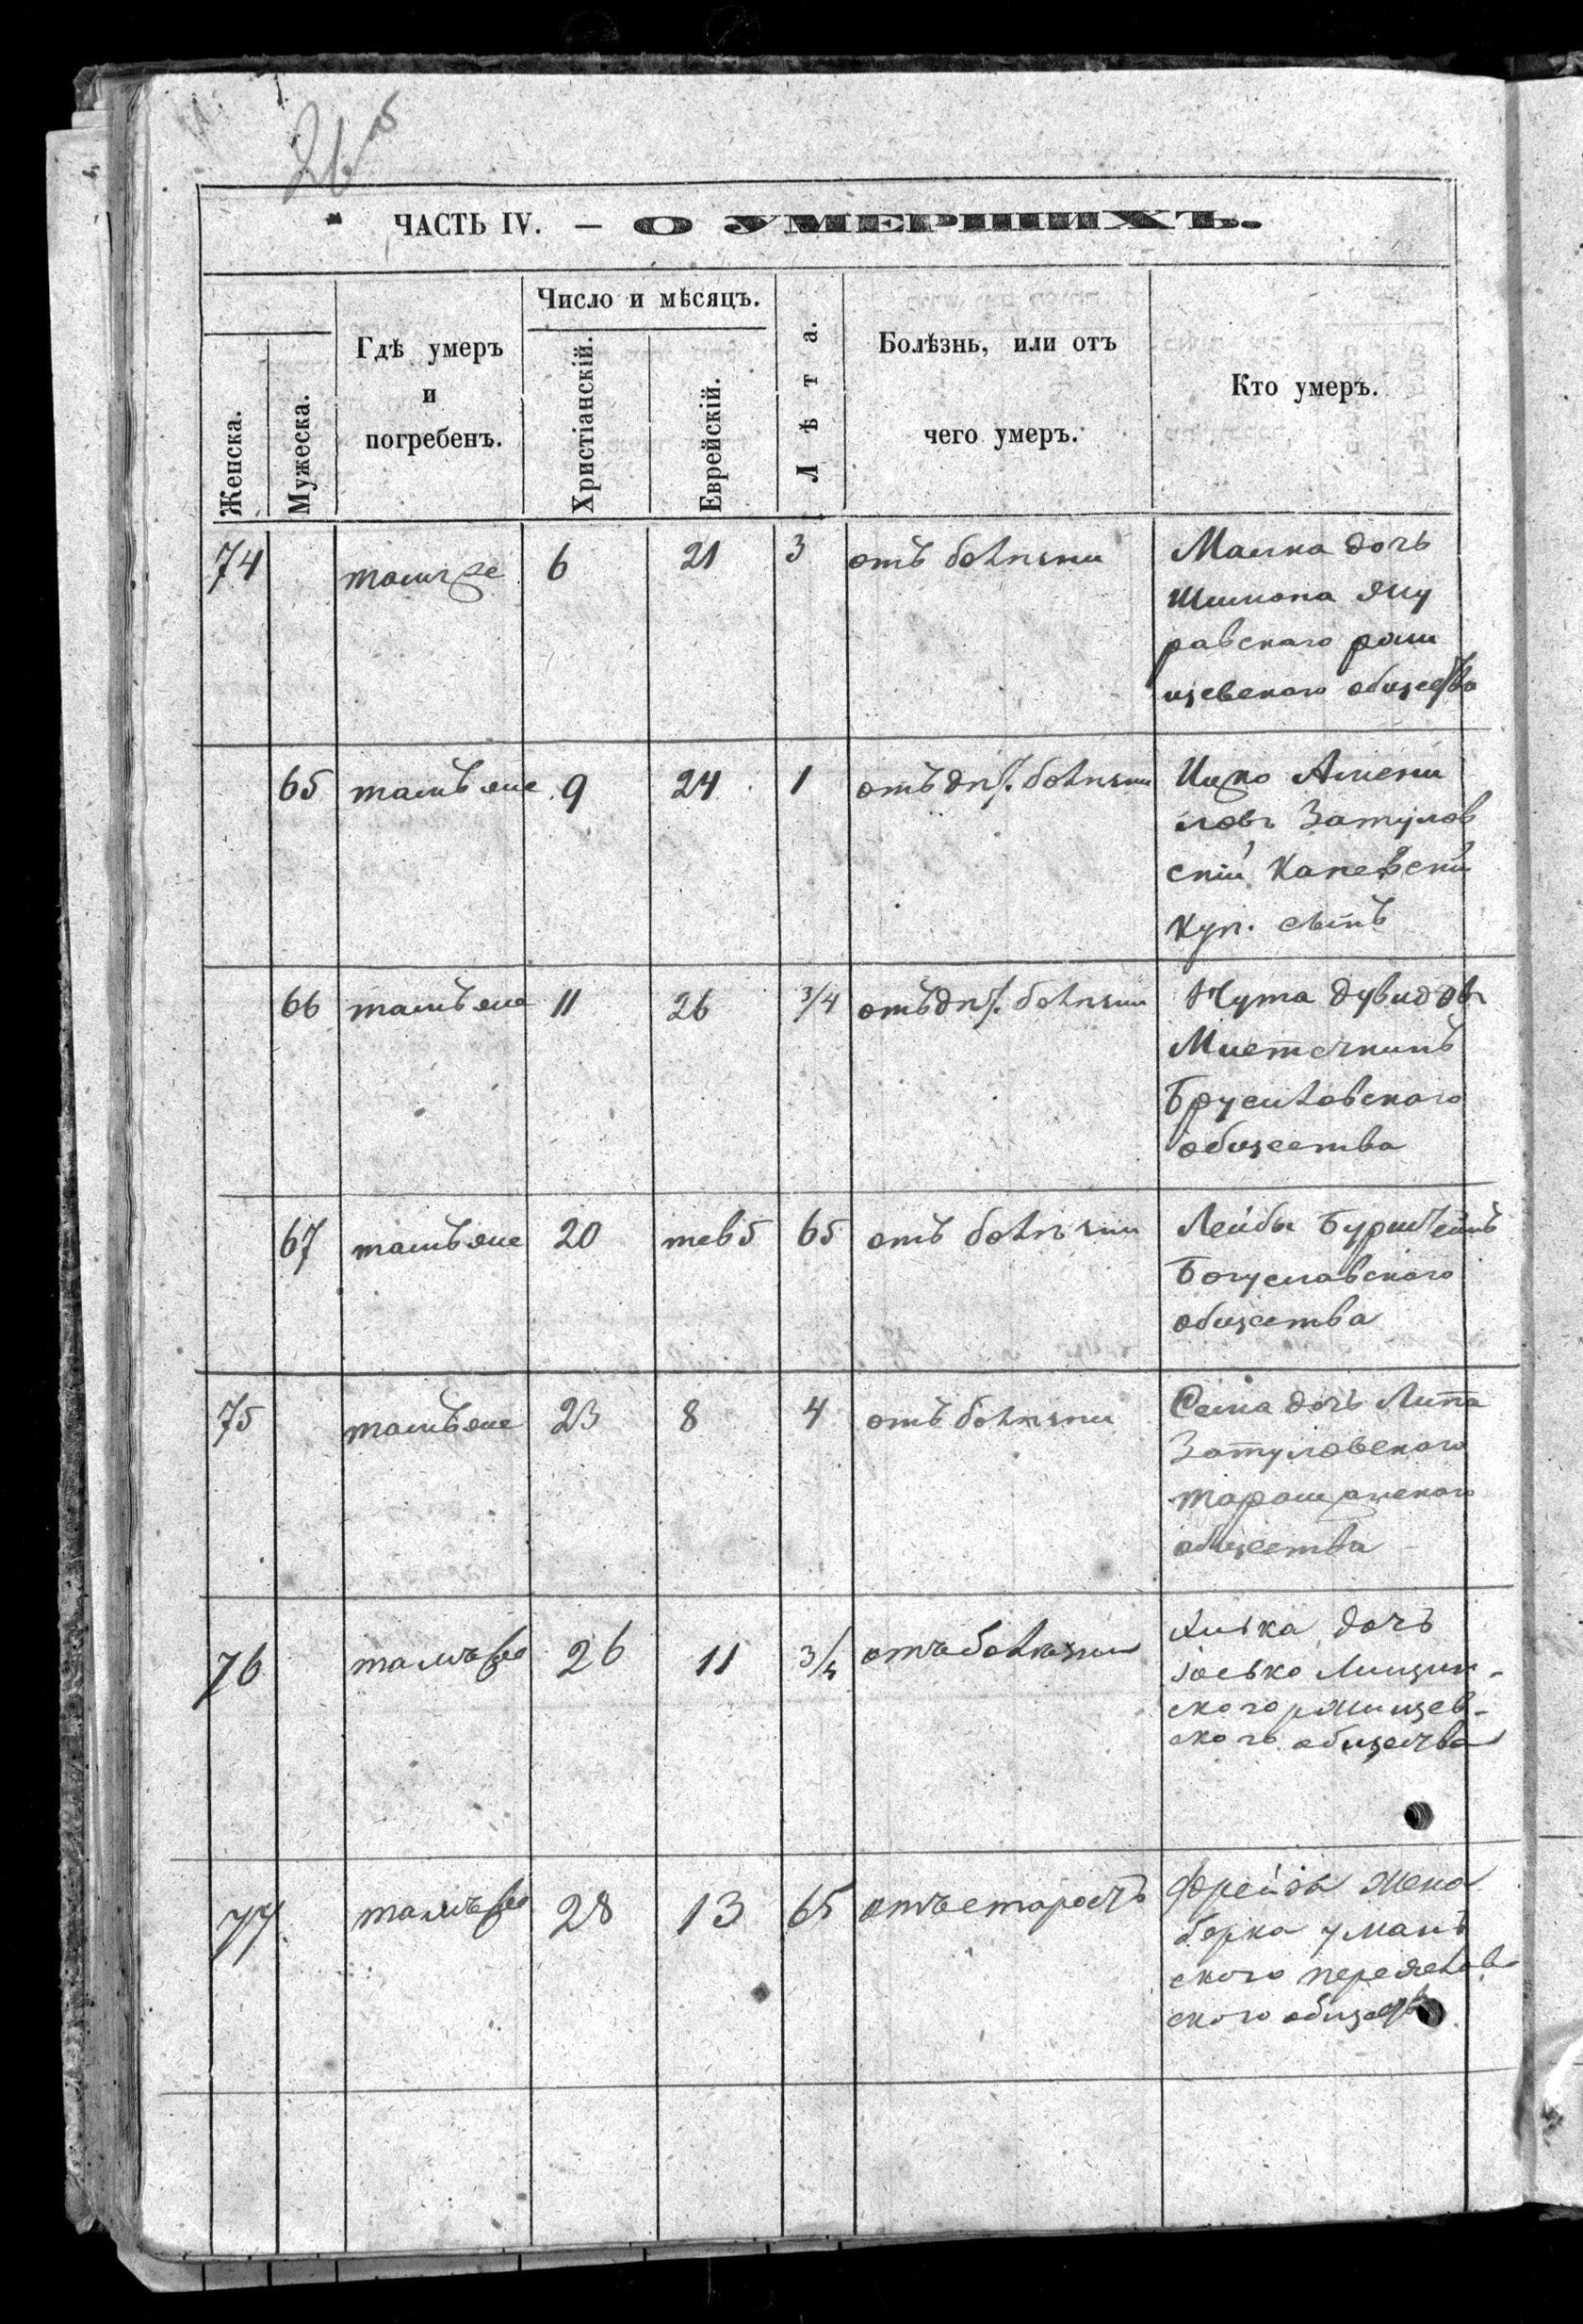 ЧАСТЬ IV. — О УМЕРШИХЪ.
Женска.
Мужеска.
Гдѣ умеръ
и
погребенъ.
Число и мѣсяцъ.
Христіанскій.
Еврейскій.
Лѣта.
Болѣзнь, или отъ
чего умеръ.
Кто умеръ.
74 тамже 6 21 3 отъ болѣзни
Малка дочь
Шимона
равского раки
щевского общества
65 тамъ же 9 24 1 отъ дѣт. болѣзни
Ицко
ловъ Затулов
скій Каневскій
куп. сынъ
66 тамъ же 11 26 3/4 отъ дѣт. болѣзни
Нута Дувидовъ
Местечкинъ
Брусиловского
общества
67 тамъ же 20 тев 5 65 отъ болѣзни
Лейбы
Богуславского
общества
75 тамъ же 23 8 4 отъ болѣзни
дочь Липа
Затуловского
таращанского
общества
76 тамъ же 26 11 3/4 отъ болѣзни
дочь
Іосько
ского
ского общества
77 тамъ же 28 13 65 отъ старость
Фрейда жена
берка уман
ского
ского общества